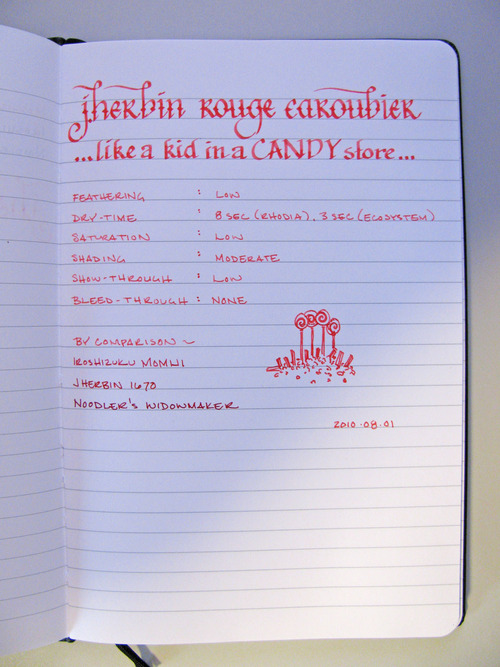 jherbin rouge caroubier
...like a kid in a CANDY store...
FEATHERING : LOW
DRY-TIME : 8 SEC (RHODIA), 3 SEC (ECOSYSTEM)
SATURATION : LOW
SHADING : MODERATE
SHOW-THROUGH : LOW
BLEED-THROUGH : NONE
BY COMPARISON ~
IROSHIZUKU MOMIJI
JHERBIN 1670
NOODLER'S WIDOWMAKER
2010.08.01